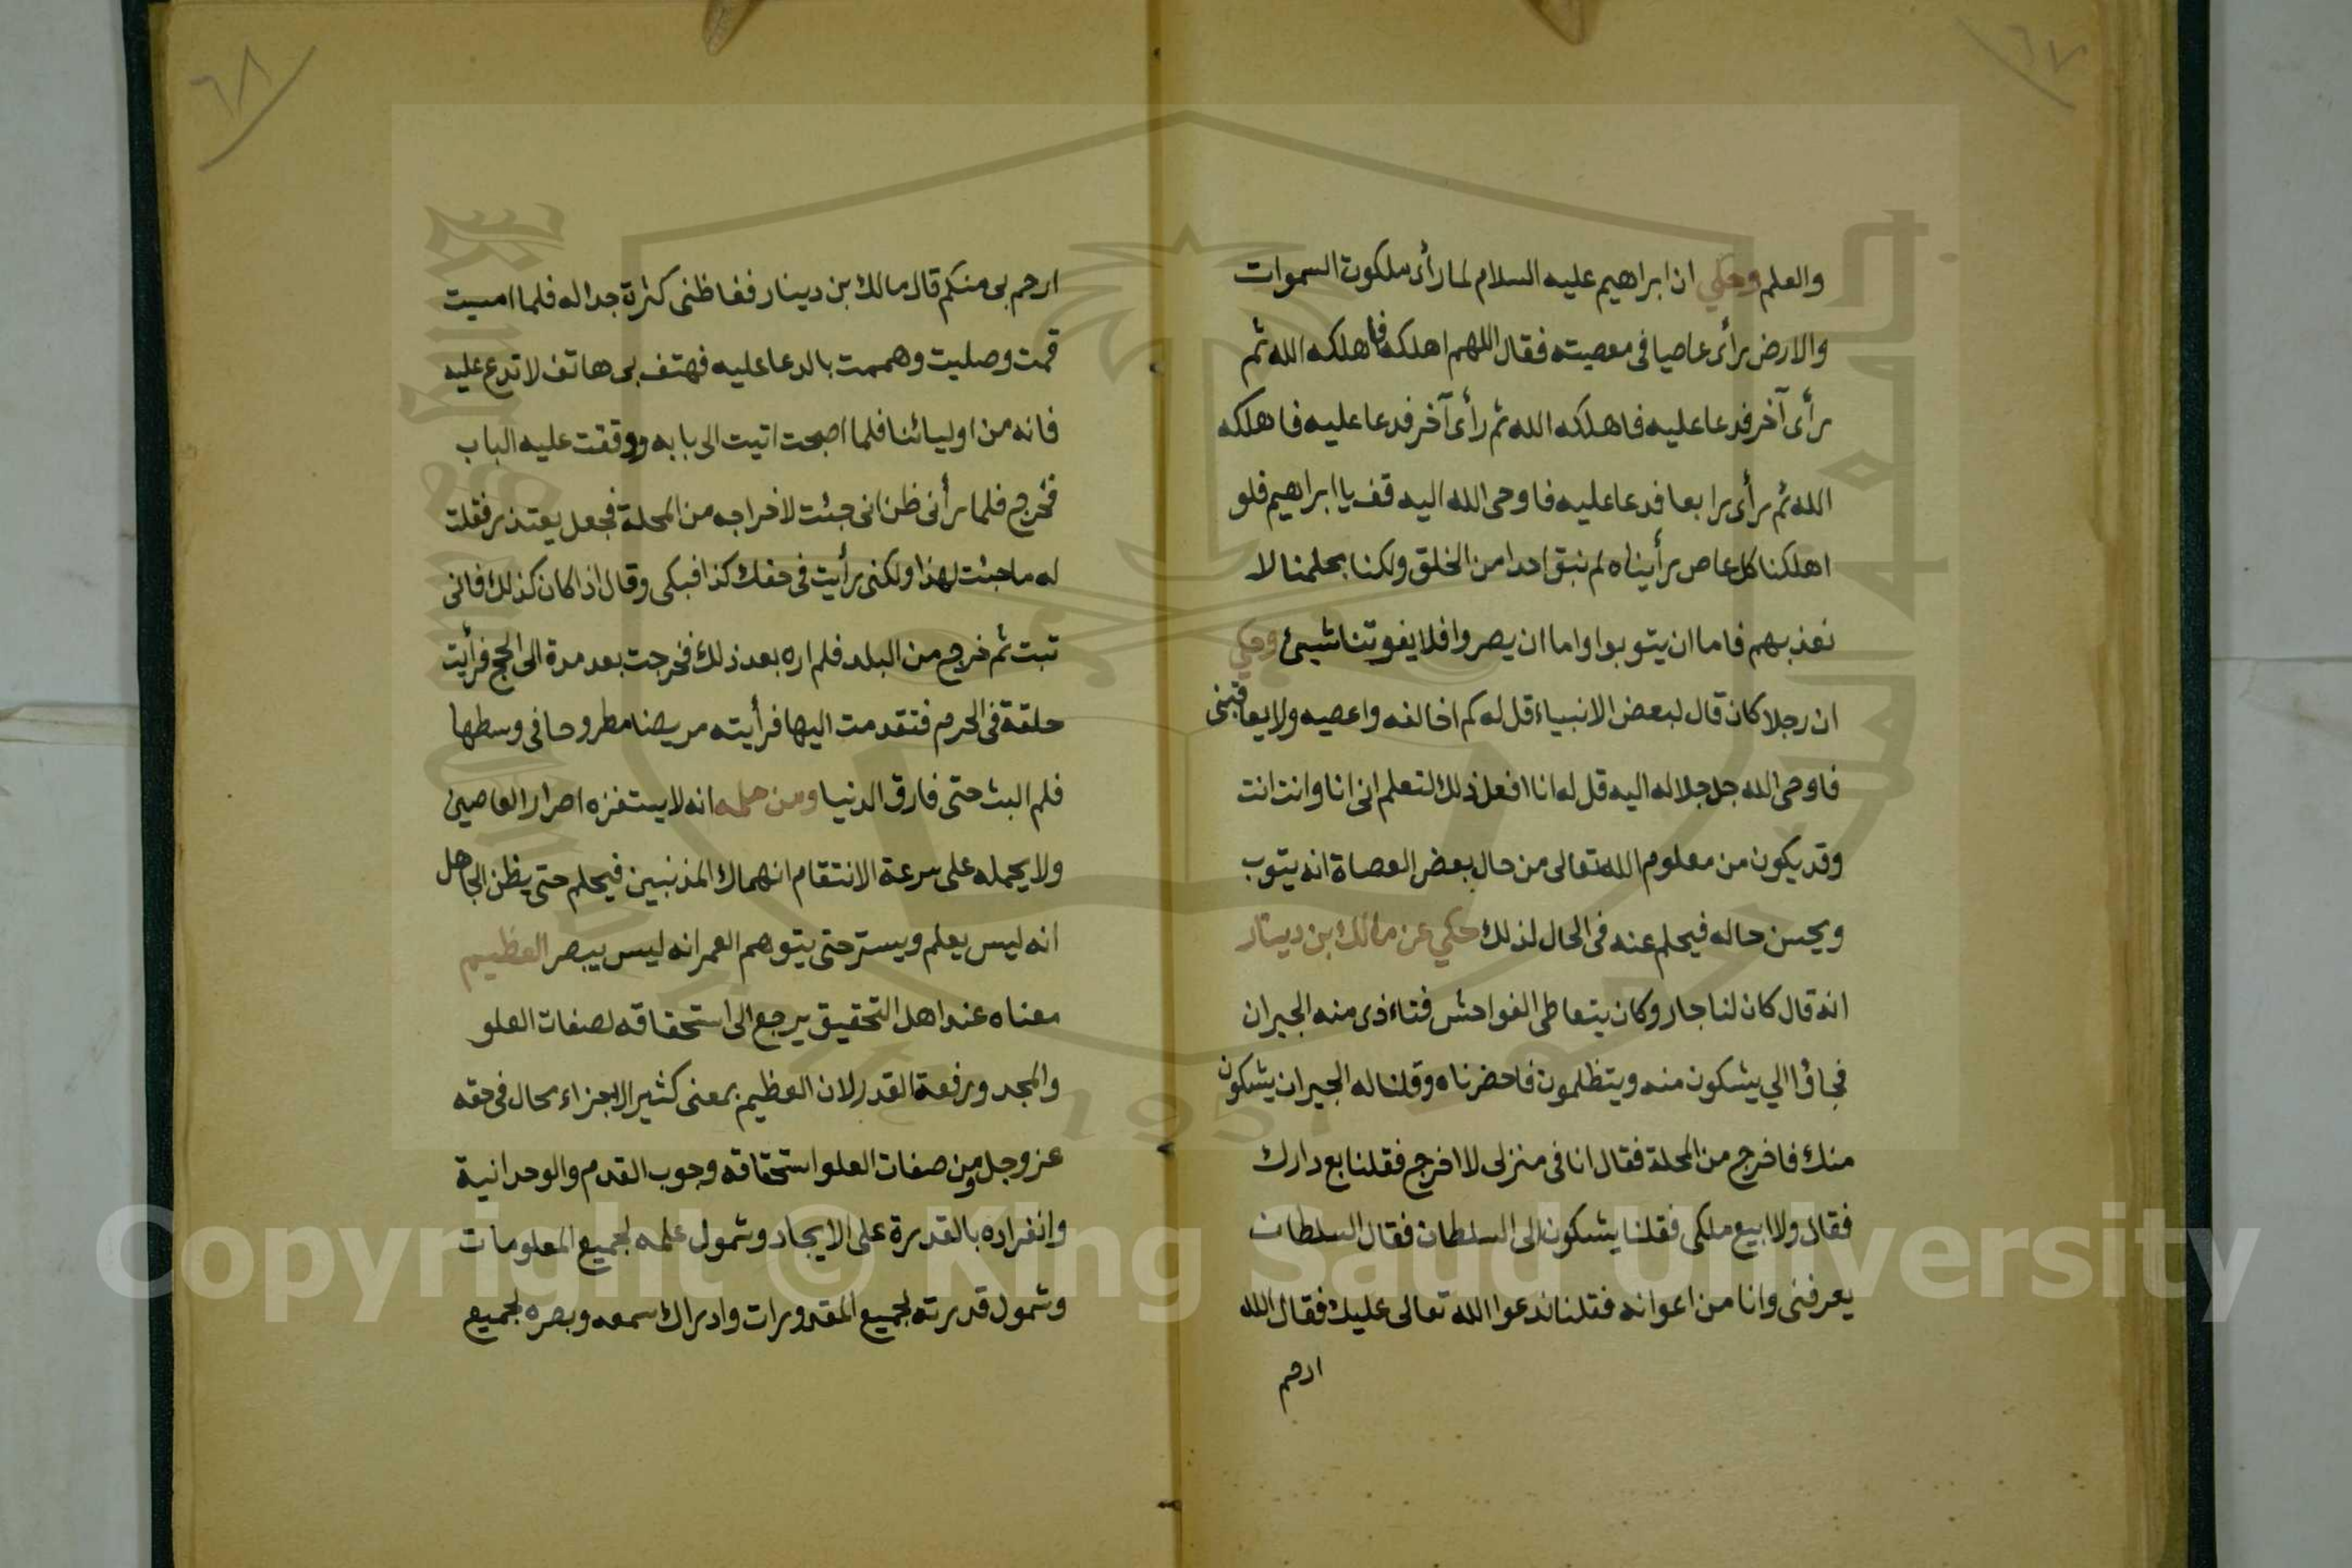 ٦٧
والعلم وحكي ان ابراهيم عليه السلام لما رأى ملكوت السموات
والارض رأى عاصيا فى معصيته فقال اللهم اهلكه فأهلكه الله ثم
رأى آخر فدعا عليه فاهلكه الله ثم رأى آخر فدعا عليه فاهلكه
الله ثم رأى رابعا فدعا عليه فاوحى الله اليه قف يا ابراهيم فلو
اهلكنا كل عاص رأيناه لم نبق احدا من الخلق ولكنا بحلمنا لا
نعذبهم فاما ان يتوبوا واما ان يصروا فلا يفوتنا شيئ وحكي
ان رجلا كان قال لبعض الانبياء قل له كم اخالفه واعصيه ولا يعاقبنى
فاوحى الله جل جلاله اليه قل له انا افعل ذلك لتعلم انى انا وانت انت
وقد يكون من معلوم الله تعالى من حال بعض العصاة انه يتوب
ويحسن حاله فيحلم عنه فى الحال لذلك حكي عن مالك بن دينار
انه قال كان لنا جار وكان يتعاطى الفواحش فتاءذى منه الجيران
فجاؤا الي يشكون منه ويتظلمون فاحضرناه وقلنا له الجيران يشكون
منك فاخرج من المحلة فقال انا فى منزلى لا اخرج فقلنا بع دارك
فقال ولا ابيع ملكى فقلنا يشكون الى السلطان فقال السلطان
يعرفنى وانا من اعوانه فقلنا ندعوا الله تعالى عليك فقال الله
ارحم
٦٨
ارحم بى منكم قال مالك بن دينار فغاظنى كثرة جداله فلما امسيت
قمت وصليت وهممت بالدعا عليه فهتف بى هاتف لا تدع عليه
فانه من اوليائنا فلما اصبحت اتيت الى بابه ووقفت عليه الباب
فخرج فلما رأنى ظن انى جئت لاخراجه من المحلة فجعل يعتذر فقلت
له ما جئت لهذا ولكنى رأيت فى حقك كذا فبكى وقال اذا كان كذلك فانى
تبت ثم خرج من البلد فلم اره بعد ذلك فخرجت بعد مدة الى الحج فرأيت
حلقة فى الحرم فتقدمت اليها فرأيته مريضا مطروحا فى وسطها
فلم البث حتى فارق الدنيا ومن حلمه انه لا يستفزه اصرار العاصين
ولا يحمله على سرعة الانتقام انهماك المذنبين فيحلم حتى يظن الجاهل
انه ليس يعلم ويستر حتى يتوهم الغمر انه ليس يبصر العظيم
معناه عند اهل التحقيق يرجع الى استحقاقه لصفات العلو
والمجد ورفعة القدر لان العظيم بمعنى كثير الاجزاء محال فى حقه
عز وجل ومن صفات العلو استحقاقه وجوب القدم والوحدانية
وانفراده بالقدرة على الايجاد وشمول علمه لجميع المعلومات
وشمول قدرته لجميع المقدورات وادراك سمعه وبصره لجميع
Copyright © King Saud University
1957